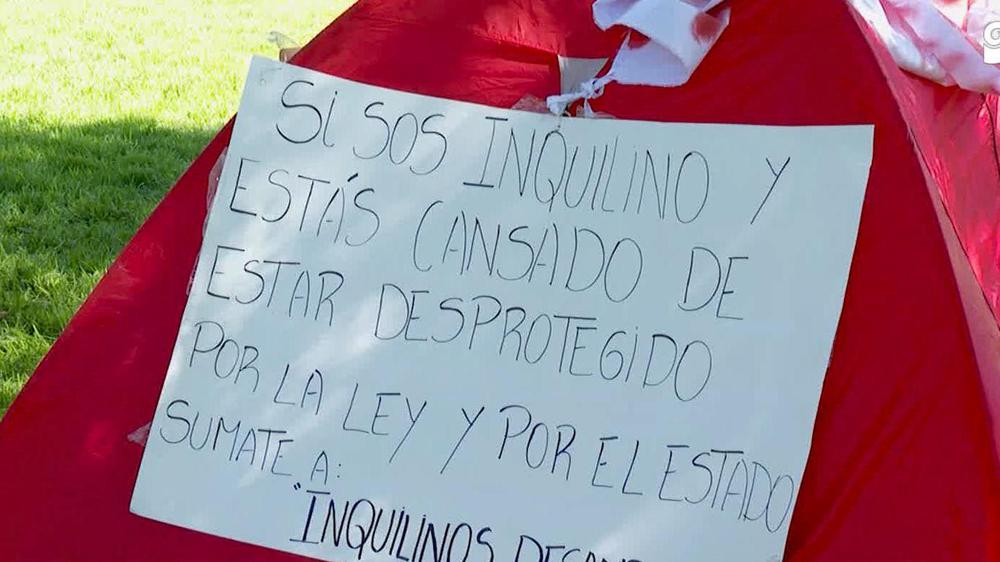 Si SOS INQUILINO Y
ESTÁS CANSADO DE
ESTAR DESPROTEGIDO
POR LA LEY Y POR EL ESTADO
SUMATE A:
"INQUILINOS